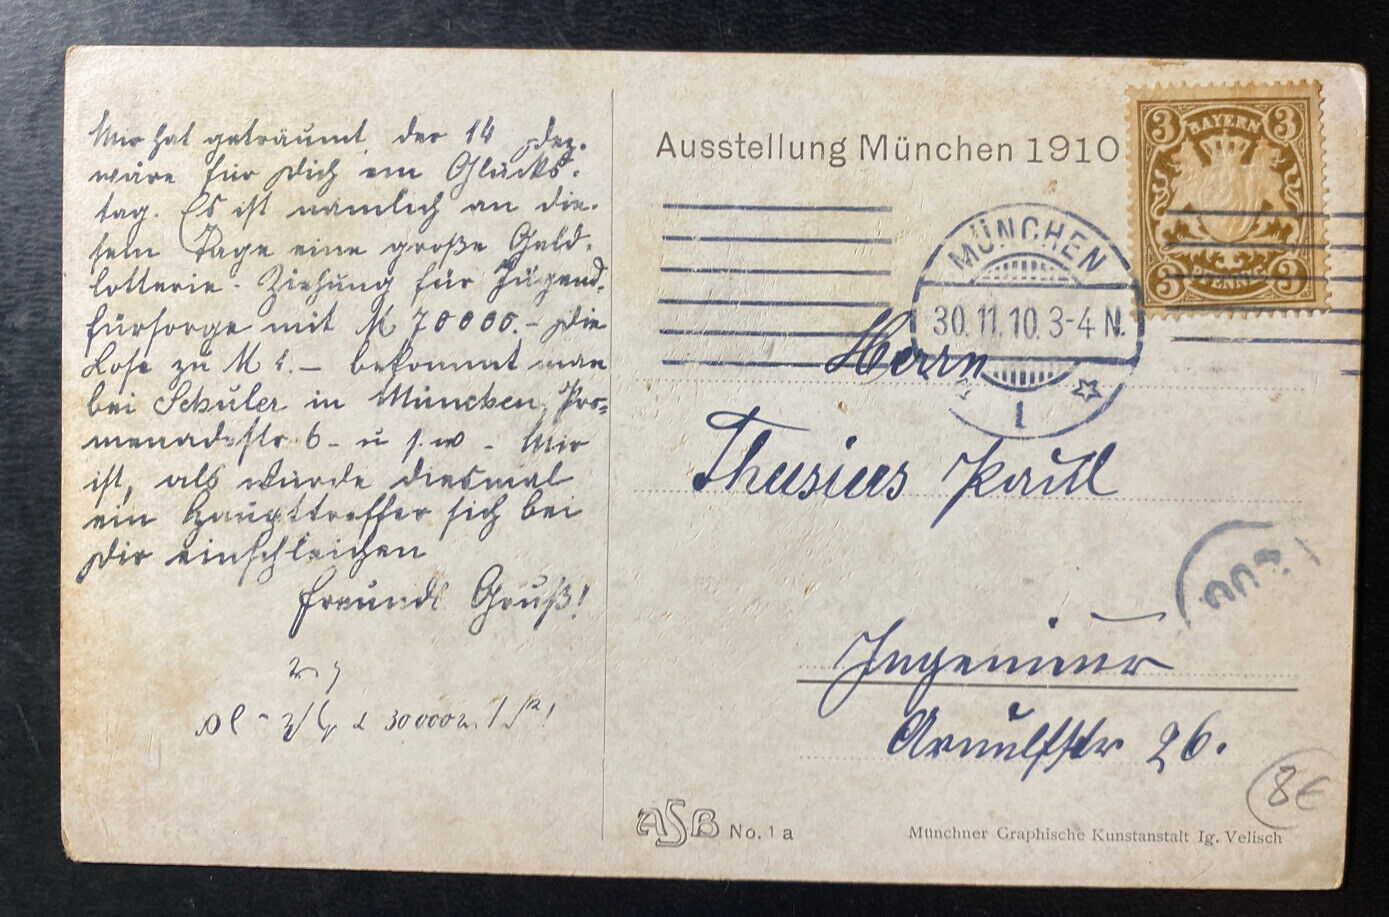 Mir hat geträumt, der 14 Dez.
wäre für Dich ein Glücks-
tag. Es ist nämlich an die-
sem Tage eine große Geld-
lotterie-Ziehung für Jugend-
fürsorge mit M 70000.- Die
Lose zu M 1.- bekommt man
bei Schuler in München, Pro-
menadestr 6 - u s. w - Mir
ist, als würde diesmal
ein Haupttreffer sich bei
Dir einschleichen
Freundl Gruß!
30000
Ausstellung München 1910
BAYERN
3 3
3 3
PFENNIG
MÜNCHEN
30.11.10.3-4 N.
1
Herrn
Thusius Paul
Ingenieur
Arnulfstr 26.
8€
ASB No. 1 a
Münchner Graphische Kunstanstalt Ig. Velisch